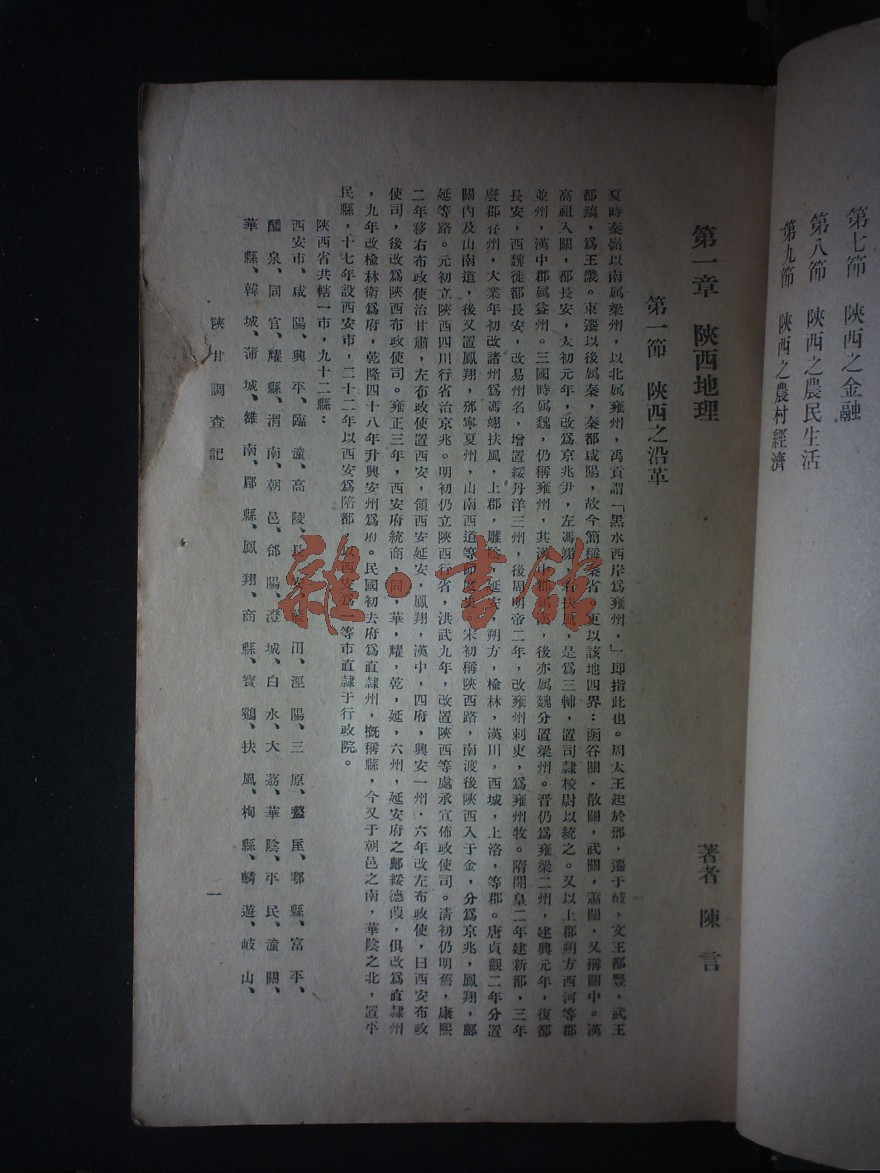 第七節　陝西之金融
第八節　陝西之農民生活
第九節　陝西之農村經濟
第一章　陝西地理
著者　陳言
第一節　陝西之沿革
夏時秦嶺以南属梁州，以北属雍州，禹貢謂「黑水西岸爲雍州，」即指此也。周太王起於邠，遷于岐，文王都豐，武王
都鎬，爲王畿。東遷以後属秦，秦都咸陽，故今簡稱秦省，更以該地四界：函谷關，散關，武關，蕭關，又稱關中。漢
高祖入關，都長安，太初元年，改爲京兆尹，左馮翊，右扶風，是爲三輔，置司隸校尉以統之。又以上郡朔方西河等郡
並州，漢中郡属益州。三國時属魏，仍稱雍州，其漢中郡，後亦属魏分置梁州。晋仍爲雍梁二州，建興元年，復都
長安，西魏徙都長安，改易州名，增置綏丹洋三州，後周明帝二年，改雍州刺吏，爲雍州牧。隋開皇二年建新都，三年
廢郡存州，大業年初改諸州爲馮翊扶風，上郡，雕陰，延安，朔方，楡林，漢川，西城，上洛，等郡。唐貞觀二年分置
關內及山南道，後又置鳳翔，邠寧夏州，山南西道等節度使。宋初稱陝西路，南渡後陝西入于金，分爲京兆，鳳翔，鄜
延等路。元初立陝西四川行省治京兆。明初仍立陝西行省，洪武九年，改置陝西等處承宣佈政使司。淸初仍明舊，康熙
二年移右布政使治甘肅，左布政使置西安，領西安延安，鳳翔，漢中，四府，興安一州・六年改左布政使，曰西安布政
使司，後改爲陝西布政使司。雍正三年，西安府統商，同，華，耀，乾，延，六州，延安府之鄜綏德葭，俱改爲直隸州
，九年改楡林衛爲府，乾隆四十八年升興安州爲府。民國初去府爲直隸州，槪稱縣，今又于朝邑之南，華陰之北，置平
民縣，十七年設西安市，二十二年以西安爲陪都，以西安爲一等市直隸于行政院。
陝西省共轄一市，九十二縣：
西安市、咸陽、興平、臨潼、高陵、長安、藍田、涇陽、三原、盩厔、鄠縣、富平、
醴泉、同官、耀縣、渭南、朝邑、郃陽、澄城、白水、大荔、華陰、平民、潼關、
華縣、韓城、蒲城、雒南、郿縣、鳳翔、商縣、寶鷄、扶風、栒縣、麟遊、岐山、
陝甘調查記
一
雜・書館